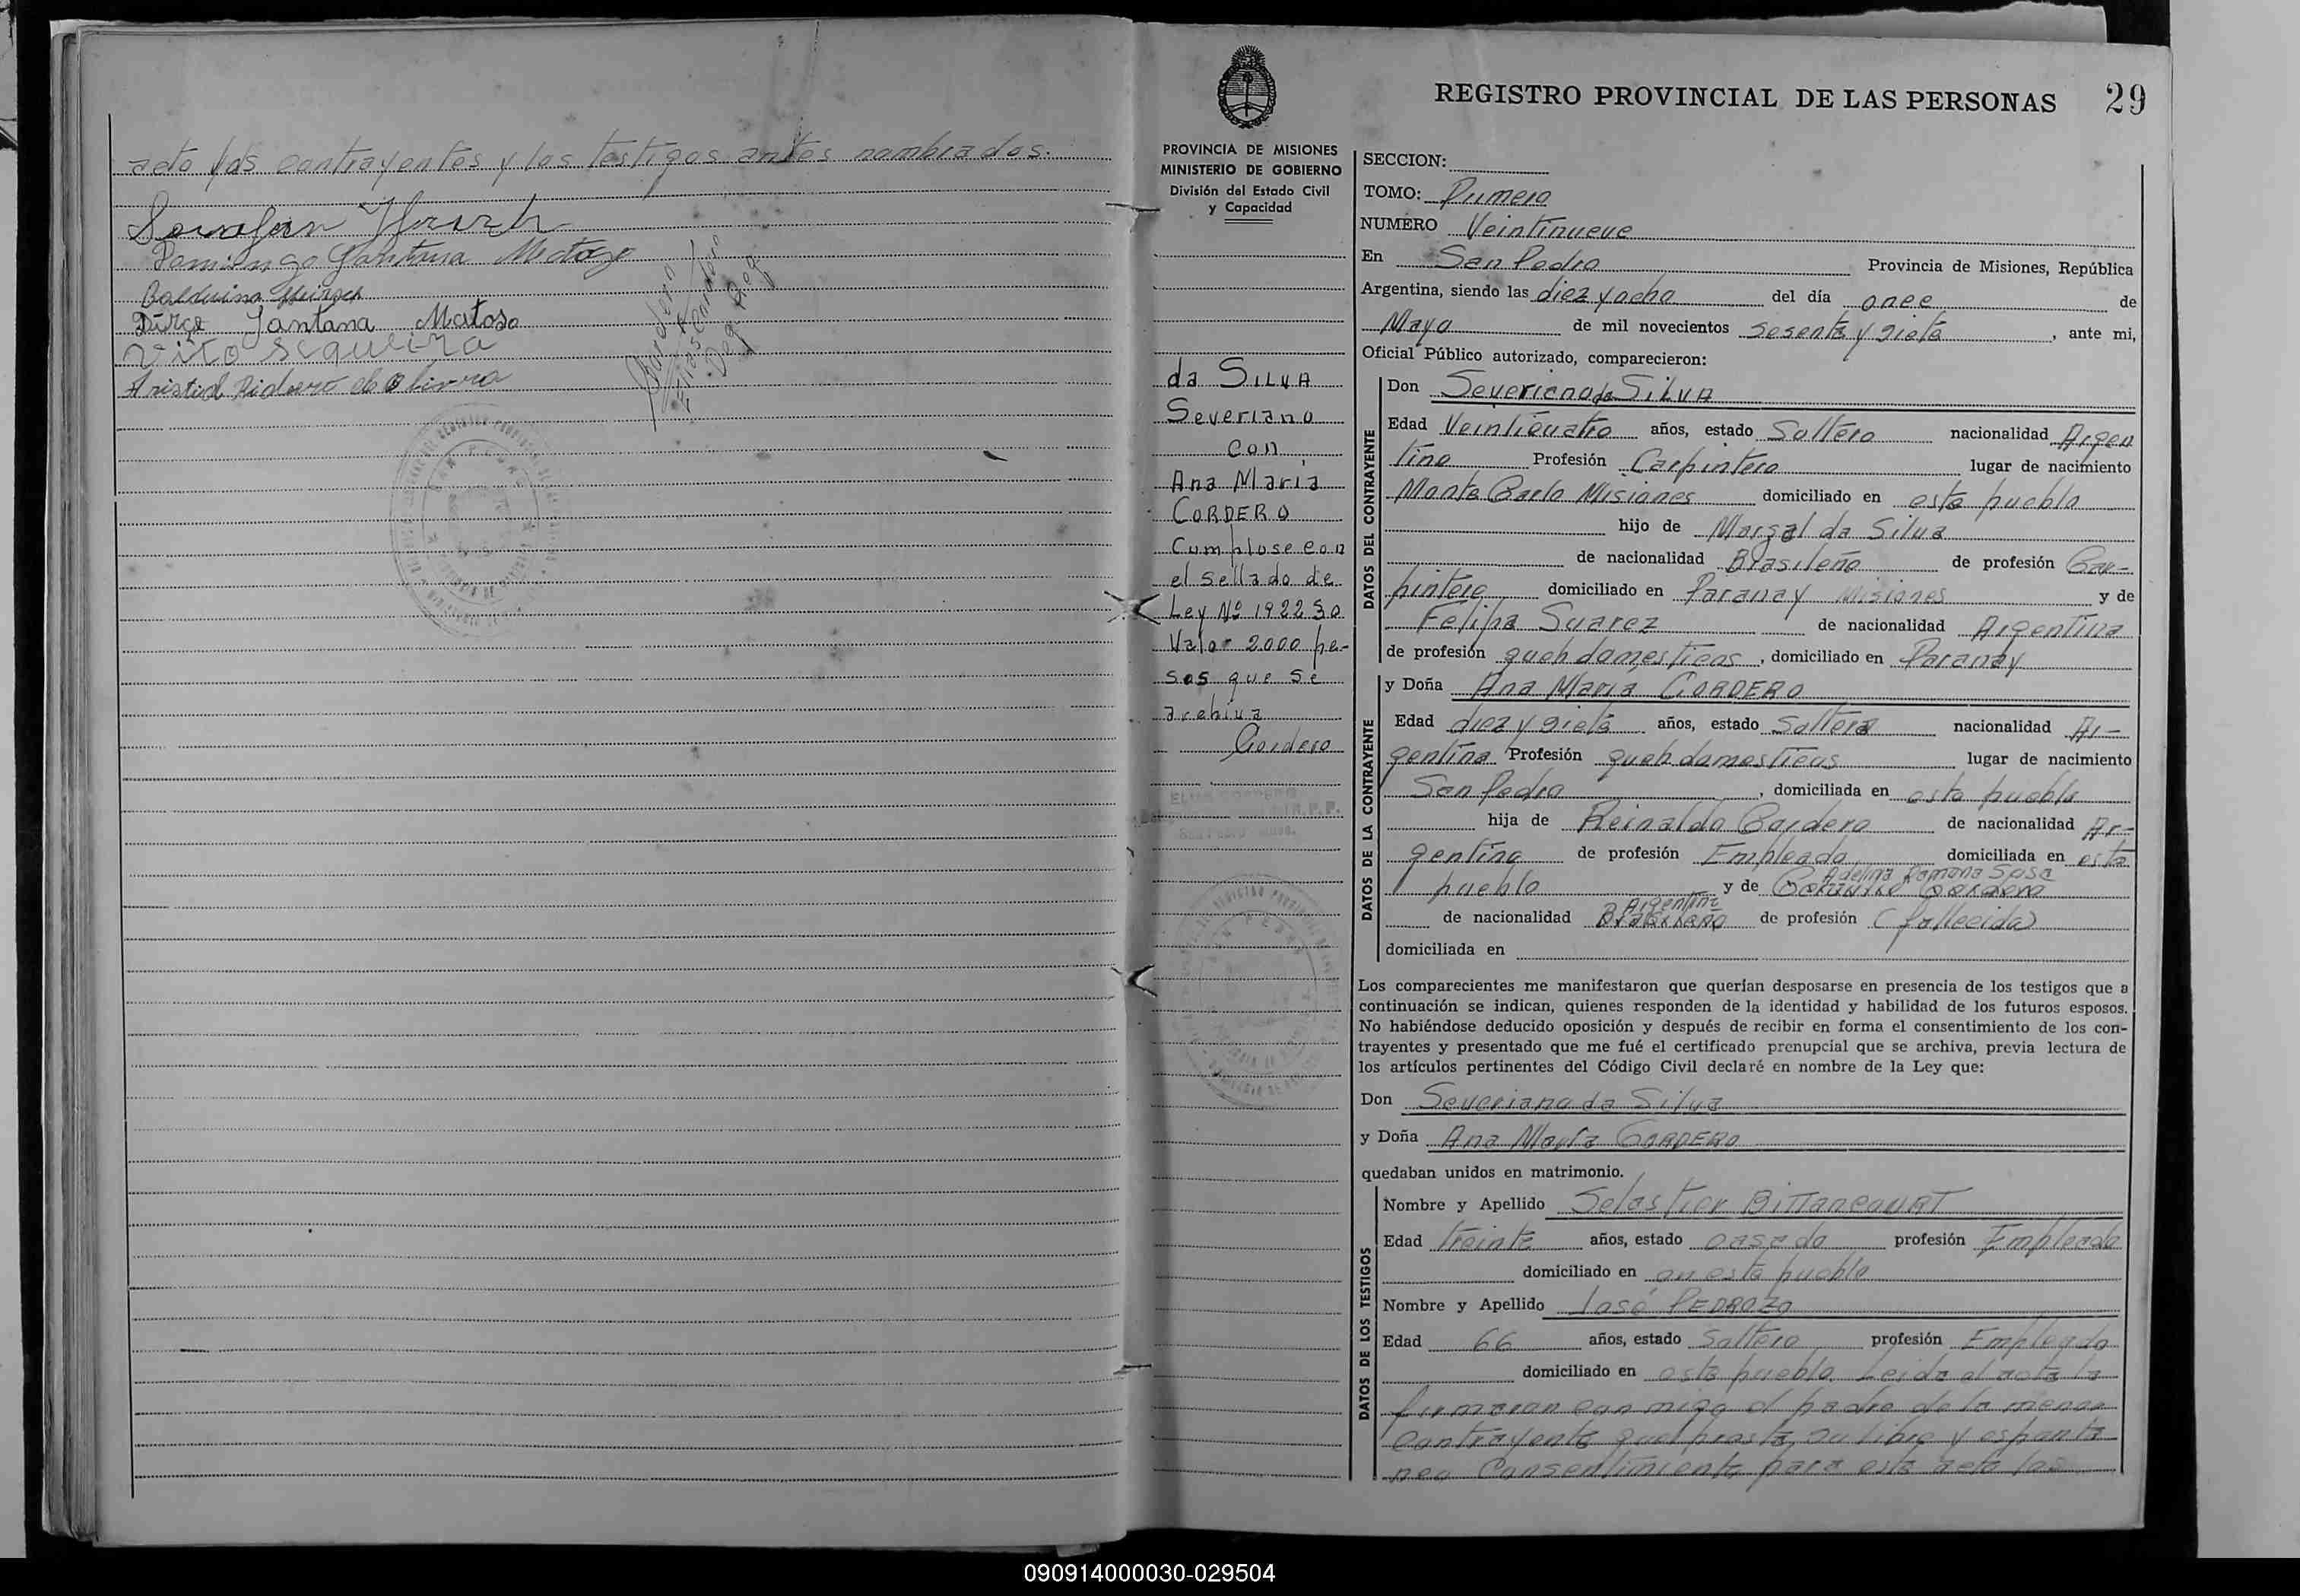 acto los contrayentes y los testigos antes nombrados.
Domingo Santana Matozo
Balduino Hirsch
Dirce Santana Matoso
Vito Sequeira
REGISTRO PROVINCIAL DE LAS PERSONAS 29
PROVINCIA DE MISIONES
MINISTERIO DE GOBIERNO
División del Estado Civil
y Capacidad
da SILVA
Severiano
con
Ana María
CORDERO
Cumplose con
el sellado de
Ley Nº 192250
Valor 2000 pe-
sos que se
archiva
Cordero
SECCION:
TOMO: Primero
NUMERO Veintinueve
En San Pedro Provincia de Misiones, República
Argentina, siendo las diez y ocho del día once de
Mayo de mil novecientos sesenta y siete, ante mi,
Oficial Público autorizado, comparecieron:
DATOS DEL CONTRAYENTE
Don Severiano da SILVA
Edad Veinticuatro años, estado Soltero nacionalidad Argen
tino Profesión Carpintero lugar de nacimiento
Monte Carlo Misiones domiciliado en este pueblo
hijo de Marzal da Silva
de nacionalidad Brasileño de profesión Car-
pintero domiciliado en Paranay Misiones y de
Felipa Suarez de nacionalidad Argentina
de profesión queh domesticos, domiciliado en Paranay
DATOS DE LA CONTRAYENTE
y Doña Ana María CORDERO
Edad diez y siete años, estado Soltera nacionalidad Ar-
gentina Profesión queh domesticos lugar de nacimiento
San Pedro, domiciliada en este pueblo
hija de Reinaldo Cordero de nacionalidad Ar-
gentino de profesión Empleado domiciliada en este
pueblo y de Adelina Ramona Sosa
de nacionalidad Argentina de profesión (fallecida)
domiciliada en
Los comparecientes me manifestaron que querían desposarse en presencia de los testigos que a
continuación se indican, quienes responden de la identidad y habilidad de los futuros esposos.
No habiéndose deducido oposición y después de recibir en forma el consentimiento de los con-
trayentes y presentado que me fué el certificado prenupcial que se archiva, previa lectura de
los artículos pertinentes del Código Civil declaré en nombre de la Ley que:
Don Severiano da Silva
y Doña Ana María CORDERO
quedaban unidos en matrimonio.
DATOS DE LOS TESTIGOS
Nombre y Apellido Selastier BITTANCOURT
Edad Treinta años, estado casado profesión Empleado
domiciliado en en este pueblo
Nombre y Apellido José PEDROZO
Edad 66 años, estado Soltero profesión Empleado
domiciliado en este pueblo. Leida el acta la
firmaron con migo el padre de la menor
contrayente quel presta su libre y esponta
neo Consentimiento para este acto los
090914000030-029504